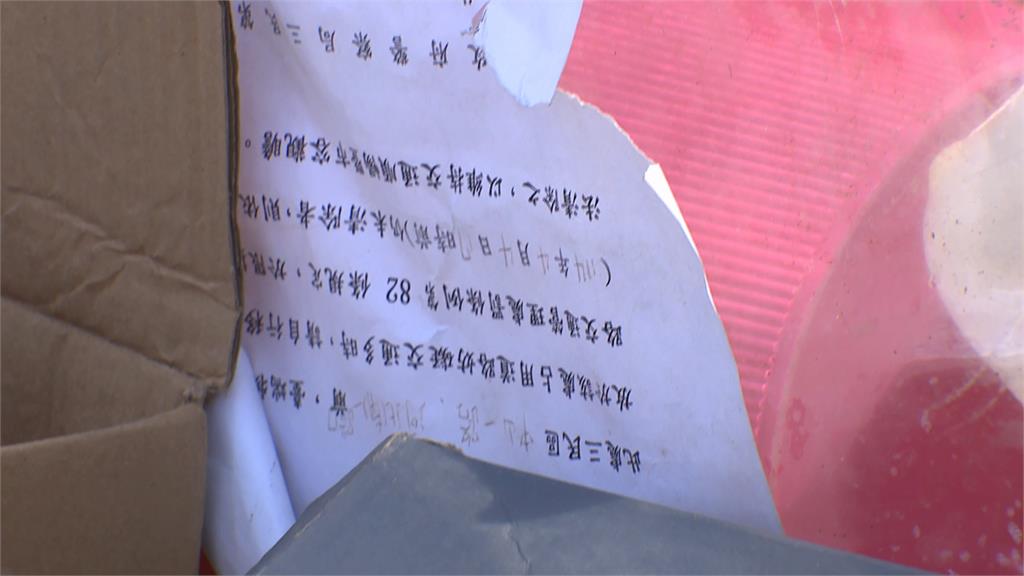 此處三民區中山一路、河北 前,臺端
放於該處占用道路妨礙交通多時,請自行移
路交通管理處罰條例第 82 條規定,於限
(114年4月 日 時前)仍未清除者,則依
法清除之,以維持交通順暢暨市容觀瞻。
政府警察局三民第